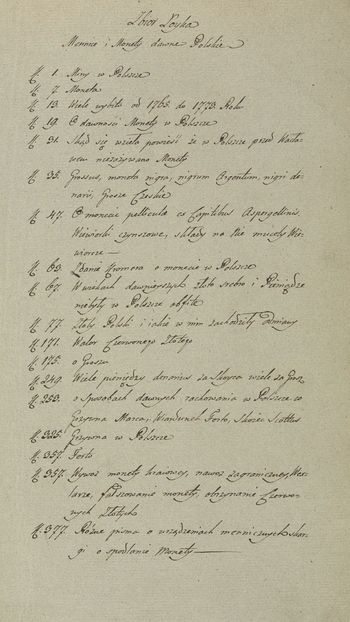 Zbior Łoyka
Mennice i Monety dawne Polskie
K. 1. Miny w Polszcze
K. 7. Moneta
K. 13. Wiele wybito od 1765 do 1773 Roku
K. 19. O dawności Monety w Polszcze
K. 31. Skąd się wzieła powieść że w Polszcze przed Wacła-
wem nieużywano Monety
K. 35. Grossus, moneta nigra, nigrum Argentum, nigri de-
narii, Grosze Czeskie
K. 47. O monecie pelliculæ Capitibus Aspergellinis.
Wiewiorki czynszowe, składy na
K. 63. Zdanie Kromera o monecie w Polszcze
K. 67. Wwiekach dawnieyszych złoto srebro i Pieniądze
niebyły w Polszcze obfite
K. 77. Złoty Polski i iakie w nim zachodziły odmiany
K. 171. Walor Czerwonego Złotego
K. 175. o Groszu
K. 249. Wiele pieniędzy denarius
K. 253. o Sposobach dawnych rachowania w Polszcze
Grzywna Marca, Wiardunek Ferto, Skoiec Scottus
K. 325. Grzywna w Polszcze
K. 357. Ferto
K. 357. Wywoz monety kraiowey, nawoz zagraniczney,
fałszowanie monety, obrzynanie Czerwo-
nych Złotych
K. 377. Różne pisma o urządzeniach menniczych skar-
gi o spodlenie Monety